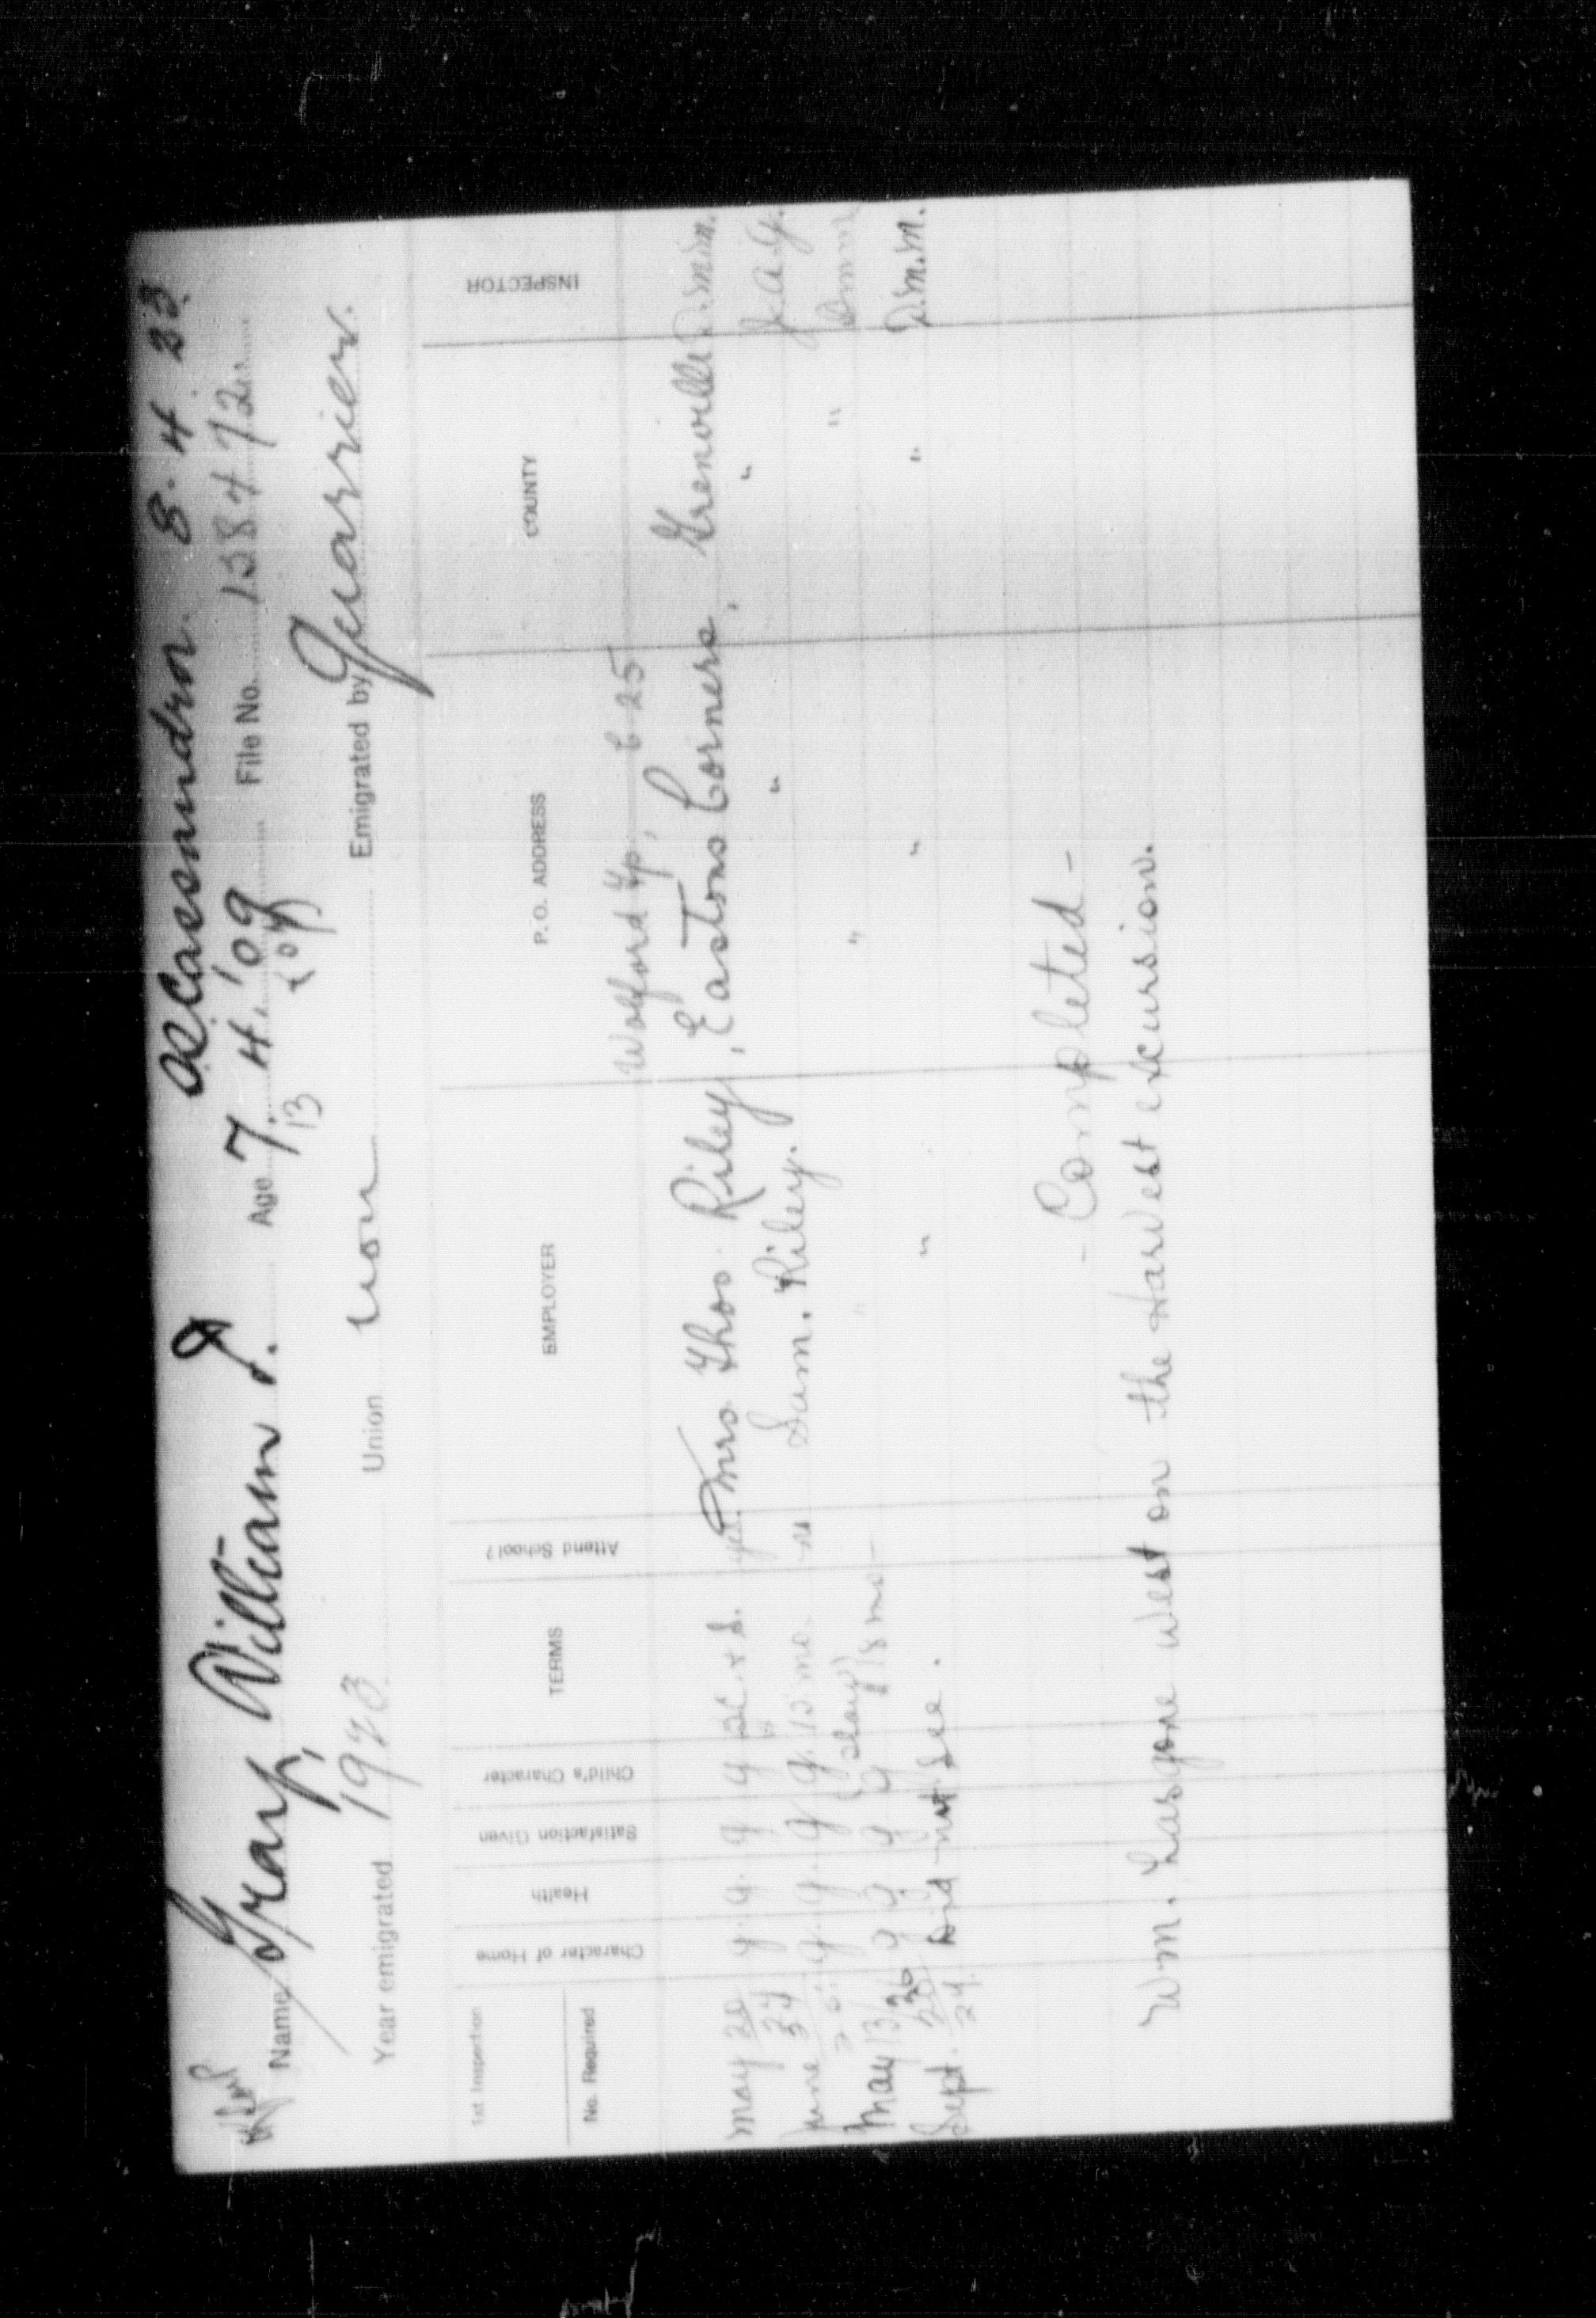 SS Cassandra. 8. 4. 23.
Name Gray, William T. Age 7. 4. '09 File No. 158472
13 (09)
Year emigrated 1923 Union non Emigrated by Quarrier.
1st Inspection
No. Required
Character of Home Health Satisfaction Given Child's Character TERMS Attend School? EMPLOYER P.O. ADDRESS COUNTY INSPECTOR
Wolford Tp, C 25
May 20/24 g. g. g g & S. yes Mrs. Thos. Riley, Eastons Corners, Grenville D.M.M.
June g. g. g g. 15 mo. Sam. Riley. " " J.A.G.
(Stay)
May 13/26 g g g g 18 mo — " " "
Sept. Did not see. " " " D.M.M.
- Completed -
Wm. has gone West on the Harvest excursion.